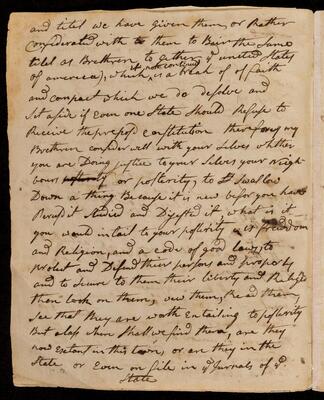 and titel we have Given them, or Rather
considerated with to them to Bair the Same
titel as Brethren to gather ye united States
of america), which is a breach of of faith
and compact which we do desolve and
Set aside if even one State Should Refuse to
Receive the propos'd constitution therefore my
Brethren consider well with your Selves whither
you are Doing justice to your Selves your neigh
bours or posterity, to Swallow
Down a thing Because it is new before you have
Perus'd it Studied and Dijested it, what is it
you would intail to your posterity is it freedom
and Religion, and a code of good laws, to
protect and Defend their persons and property
and to Secure to them their liberty and Religion
then look on them, vew them, Read them,
See that they are worth Entailing to posterity
But alas when Shall we find them, are they
now extant in this town, or are they in the
State or Even on file in ye Jurnals of ye
State